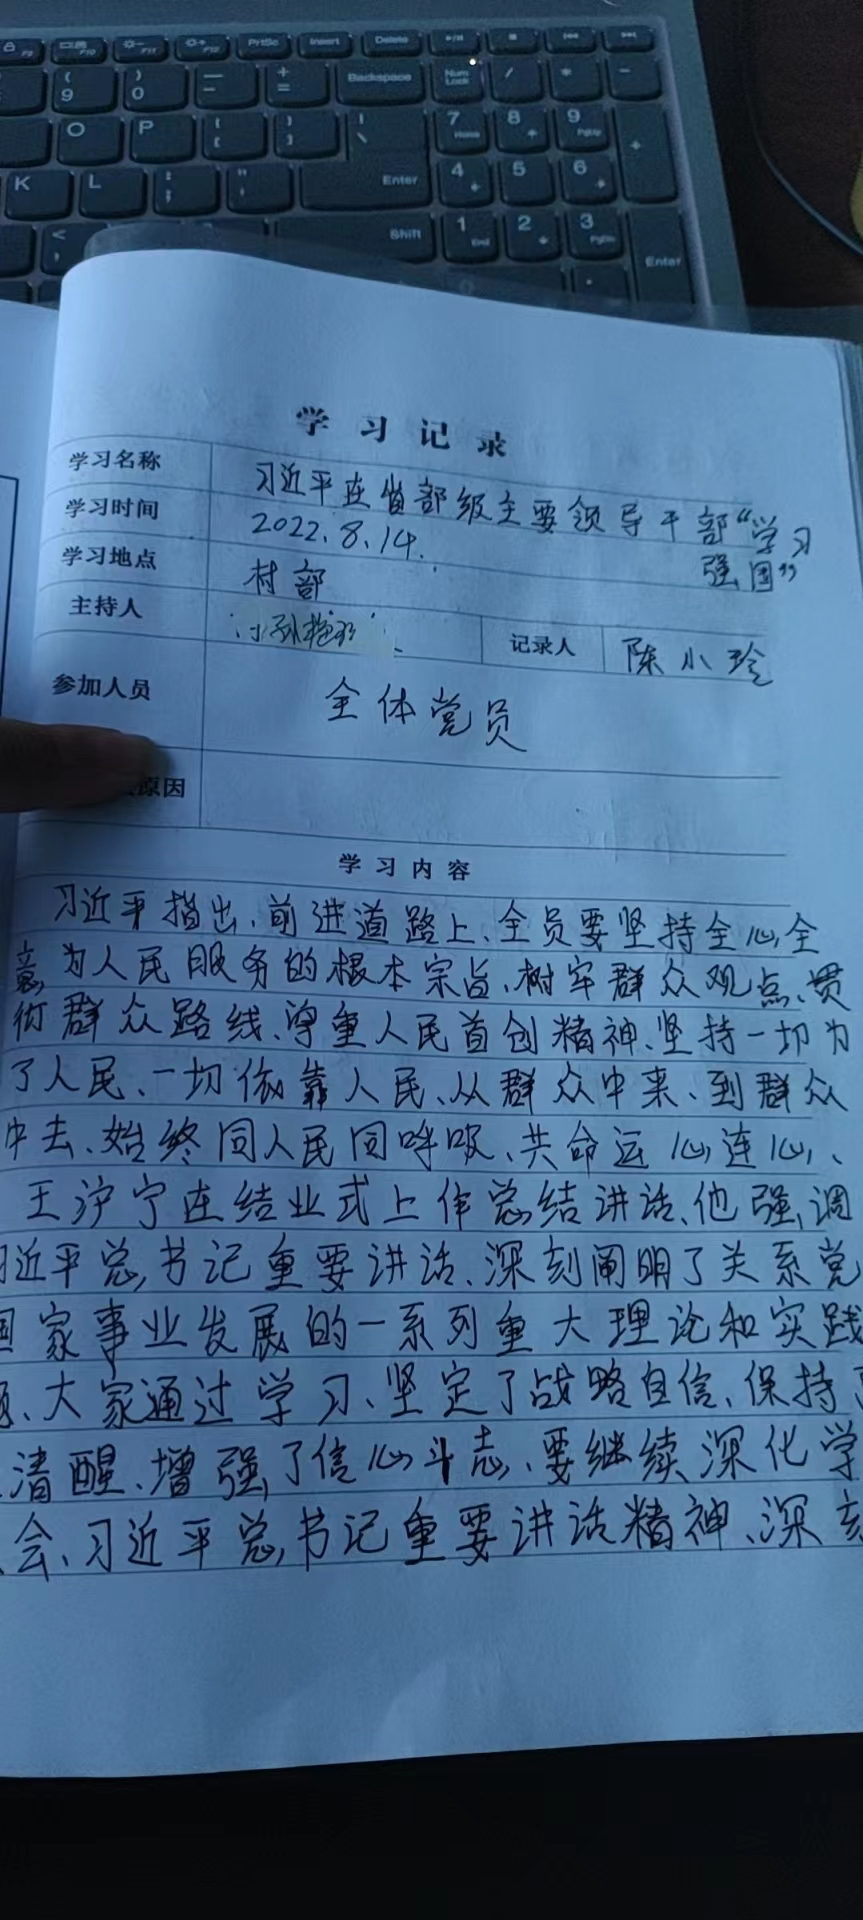 F9 F10 F11 F12 PrtSc Insert Delete
( 9 ) 0 — - + = Backspace Num Lock / * -
O P { [ } ] | \ 7 Home 8 9 PgUp +
K L : ; " ' Enter 4 5 6
< , Shift 1 End 2 3 PgDn Enter
学习记录
学习名称 习近平在省部级主要领导干部“学习
强国”
学习时间 2022.8.14.
学习地点 村部
主持人 记录人 陈小玲
参加人员 全体党员
原因
学习内容
习近平指出、前进道路上、全员要坚持全心全
意为人民服务的根本宗旨、树牢群众观点、贯
彻群众路线、尊重人民首创精神、坚持一切为
了人民、一切依靠人民、从群众中来、到群众
中去、始终同人民同呼吸、共命运心连心、
王沪宁在结业式上作总结讲话、他强调
习近平总书记重要讲话、深刻阐明了关系党
国家事业发展的一系列重大理论和实践
、大家通过学习、坚定了战略自信、保持了
清醒、增强了信心斗志、要继续深化学
会、习近平总书记重要讲话精神、深刻